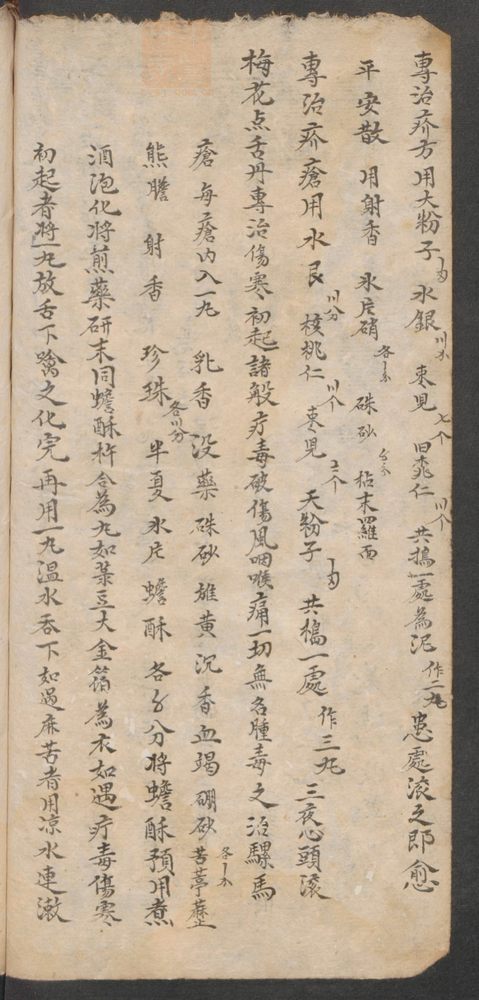 專治疥方用大粉子 水銀 枣児 七个 田桃仁 川个 共搗一處為泥 作二丸 患處滚之即愈
平安散 用射香 氷片硝 硃砂 枯末羅面
專治疥瘡用水艮 川分 核桃仁 川个 枣児 三个 天粉子 共搗一處 作三丸 三夜心頭滚
梅花点舌丹專治傷寒初起諸般疔毒破傷風咽喉痛一切無名腫毒之治騾馬
瘡每瘡内入一丸 乳香 没藥 硃砂 雄黄 沉香 血竭 硼砂 苦葶藶
熊膽 射香 珍珠 各川分 半夏 氷片 蟾酥 各分將蟾酥預用煮
酒泡化將煎藥研末同蟾酥杵合為丸如菉豆大金箔為衣如遇疔毒傷寒
初起者將一丸放舌下噙之化完再用一丸温水吞下如過麻苦者用凉水連漱